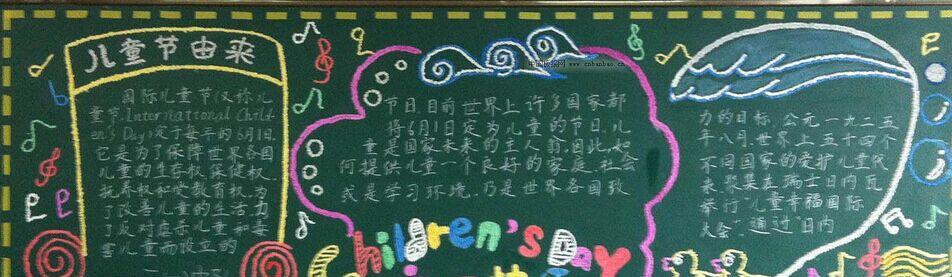 儿童节由来
国际儿童节(又称儿
童节,International Child-
en's Day)定于每年的6月1日.
它是为了保障世界各国
儿童的生存权 保健权
抚养权和受教育权,为
了改善儿童的生活,为
了反对虐杀儿童和毒
害儿童而设立的
节日.目前世界上许多国家都
将6月1日定为儿童的节日.儿
童是国家未来的主人翁.因此,如
何提供儿童一个良好的家庭.社会
或是学习环境.乃是世界各国致
力的目标.公元一九二五
年八月.世界上五十四个
不同国家的爱护儿童代
表.聚集在瑞士日内瓦
举行"儿童幸福国际
大会".通过"日内
Children's Day
www.cnbanbao.cn